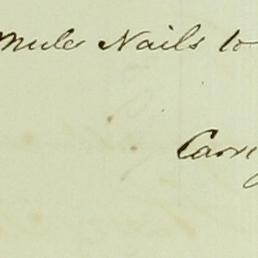 Mule Nails to
Carr